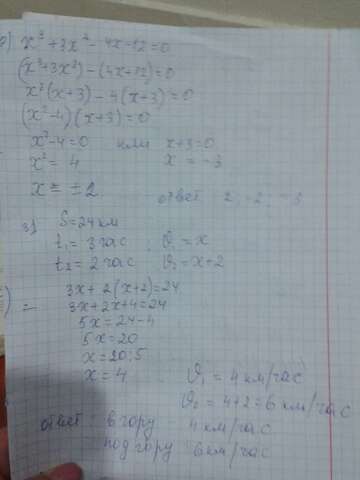 2) x³+3x²-4x-12=0
(x³+3x²)-(4x+12)=0
x²(x+3)-4(x+3)=0
(x²-4)(x+3)=0
x²-4=0 или x+3=0
x²=4 x=-3
x=±2
ответ 2, -2, -3
3) S=24км
t₁=3час, ϑ₁=x
t₂=2час ϑ₂=x+2
3x+2(x+2)=24
3x+2x+4=24
5x=24-4
5x=20
x=20:5
x=4 ϑ₁=4км/час
ϑ₂=4+2=6км/час
ответ в гору 4км/час
под гору 6км/час